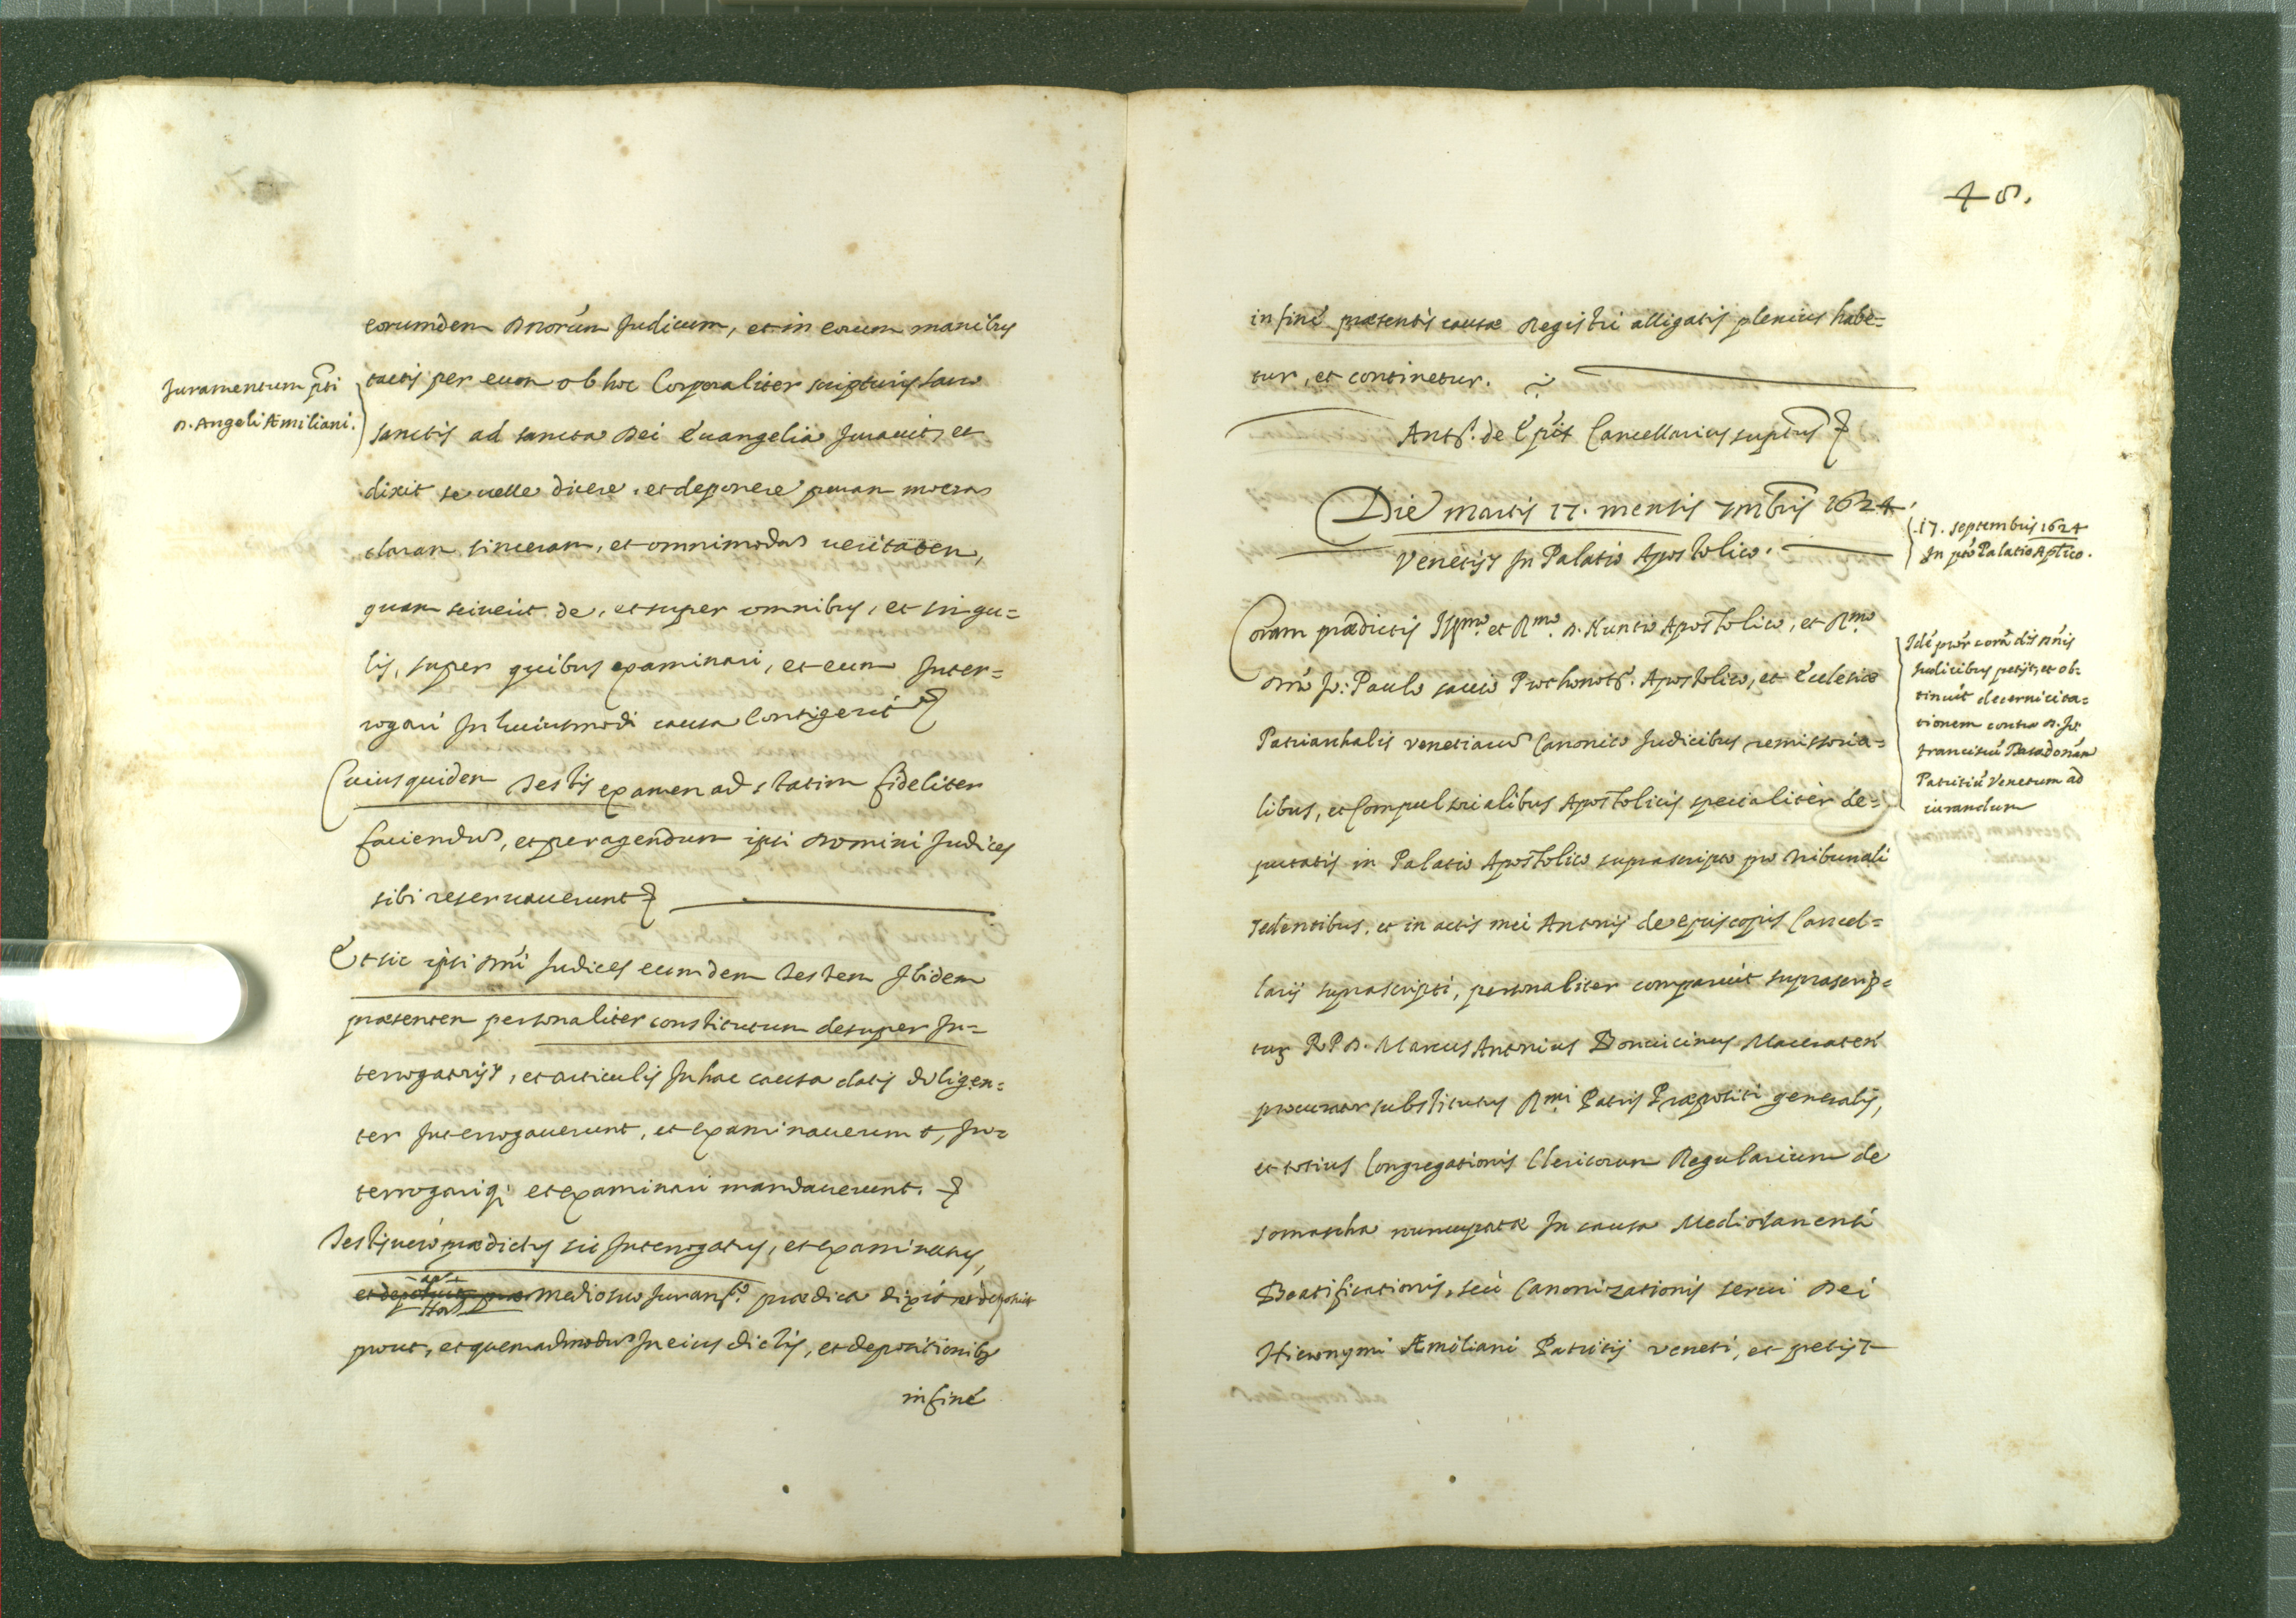 eorumdem Dnorum Judicum, et in eorum manibus
Juramentum pti
D. Angeli Æmiliani.
tactis per eum ob hoc Corporaliter scripturis sacro
sanctis ad sancta Dei Euangelia Jurauit, et
dixit se uelle dicere, et deponere puram meram
claram sinceram, et omnimodam ueritatem,
quam sciuerit de, et super omnibus, et singu=
lis, super quibus examinari, et eum Inter=
rogari In huiusmodi causa Contigerit
Cuius quidem Testis examen ad statim fideliter
faciendum, et peragendum ipsi Domini Judices
sibi reseruauerunt
Et sic ipsi Dni Judices eumdem Testem Ibidem
præsentem personaliter constitutum desuper In=
terrogatorijs, et articulis In hac causa datis diligen=
ter Interrogauerunt, et examinauerunt, In=
terrogariq; et examinari mandauerunt.
Testis uero prædictus sic Interrogatus, et examinatus,
et deposuit medio suo Juramto. prædicta dixit et deposuit
prout, et quemadmodum In eius dictis, et depositionibs
in fine
48.
in fine præsentis causæ Registri alligatis plenius habe=
tur, et continetur.
Ants. de Epis Cancellarius suptus
Die martis 17. mensis 7mbris 1624.
17. septembris 1624
In pto Palatio Aplico.
Venetijs In Palatio Apostolico.
Coram prædictis Illmo. et Rmo. D. Nuntio Apostolico, et Rmo.
Dno Jo: Paulo sauio Prothonots. Apostolico, et Ecclesiæ
Patriarchalis Venetiarum Canonico Judicibus remissoria=
libus, et Compulsorialibus Apostolicis specialiter de=
putatis in Palatio Apostolico suprascripto pro tribunali
sedentibus, et in actis mei Antonij de episcopis Cancel=
larij suprascripti, personaliter comparuit suprascrip=
tus R P D. Marcus Antonius Boncicinus Maceraten
procurator substitutus Rmi Patris Præpositi generalis,
et totius Congregationis Clericorum Regularium de
somascha nuncupatæ In causa Mediolanensi
Beatificationis, seu Canonizationis serui Dei
Hieronymi Æmiliani Patritij Veneti, et petijt
Ide pror cora dis Dnis
Judicibus petijt, et ob=
tinuit decerni cita=
tionem contra D. Jo:
franciscu Basadonam
Patritiu Venetum ad
iurandum